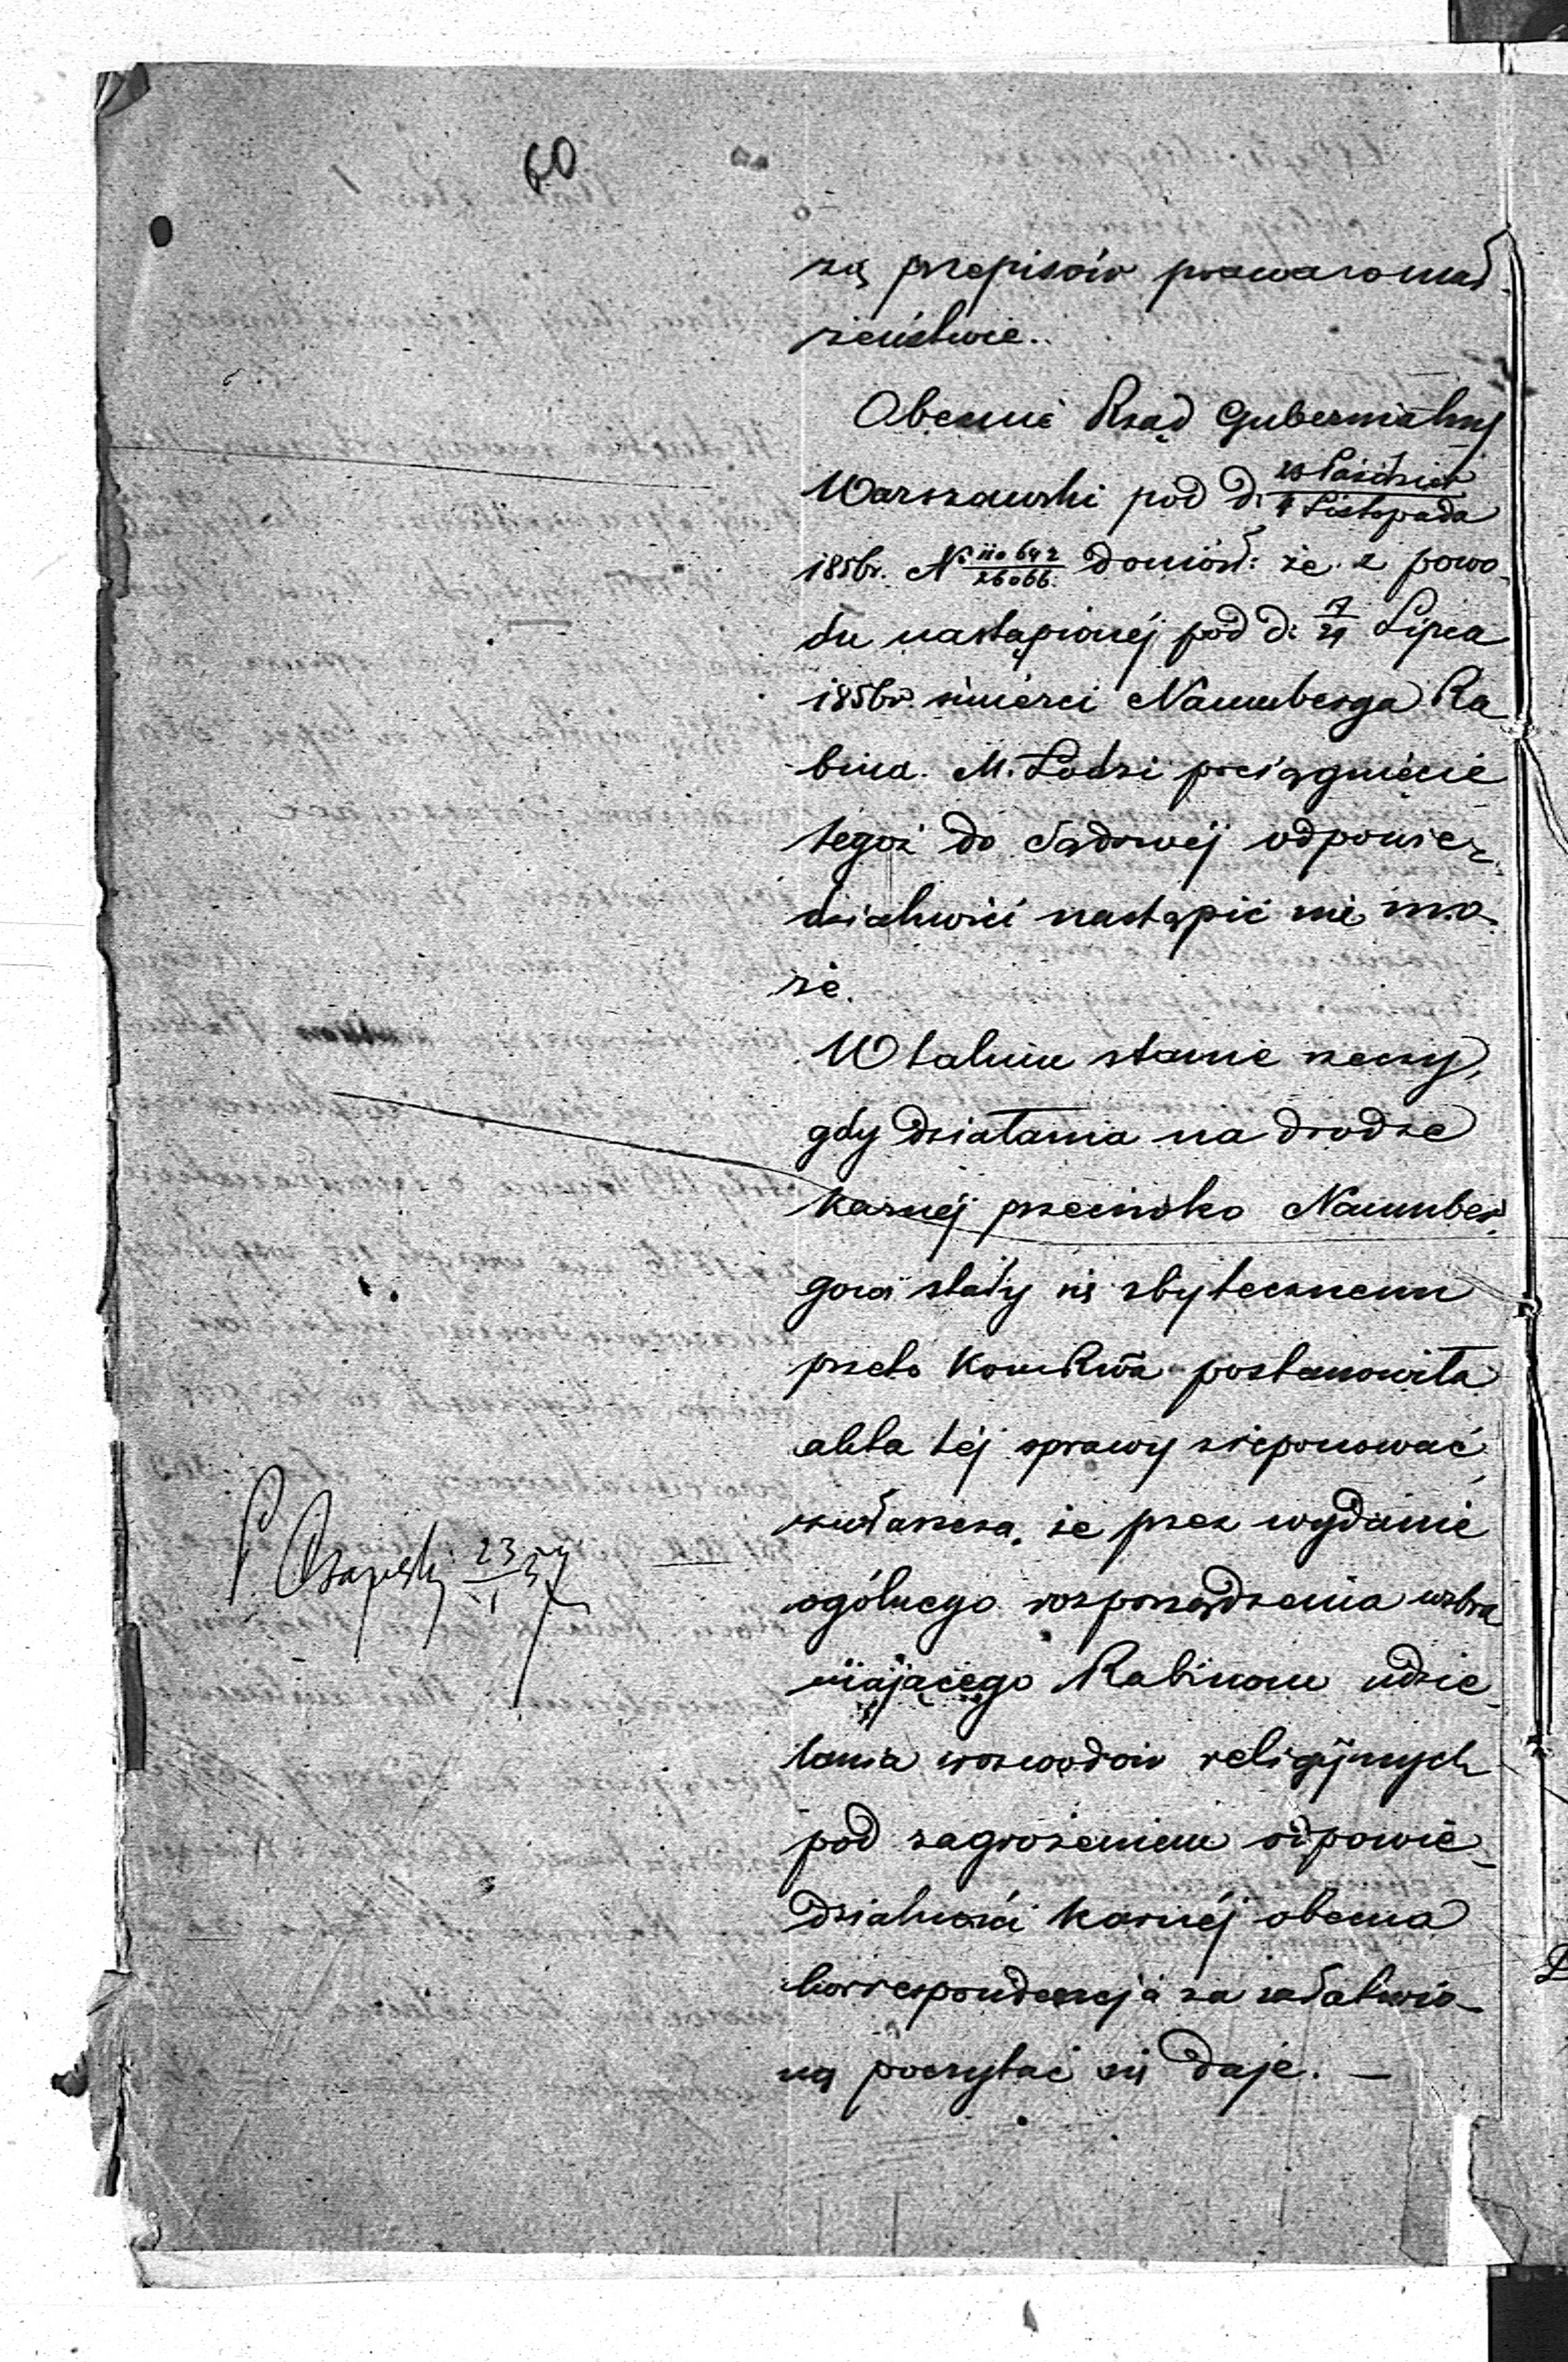 60
się przepisów prawa o mał-
żeństwie.
Obecnie Rząd Gubernialny
Warszawski pod d. 23 Paździer / 4 Listopada
1856r. N° 110642 / 26066 doniósł: że z powo-
du nastąpionéj pod d. 17 / 29 Lipca
1856r. śmierci Naumberga Ra
bina M. Łodzi pociągnięcie
tegoż do Sądowéj odpowie-
dzialności nastąpić nie mo-
że.
W takim stanie rzeczy,
gdy działania na drodze
karnéj przeciwko Naumber-
gowi stały się zbytecznemi
przeto Kom Rwa postanowiła
akta téj sprawy reponować,
zwłaszcza, że przez wydanie
ogólnego rozporządzenia wzbra
niającego Rabinom udzie-
lania rozwodów religijnych
pod zagrożeniem odpowie-
dzialności karnéj obecna
korrespondencja za załatwio-
ną poczytać się daje. —
23 / 1 57